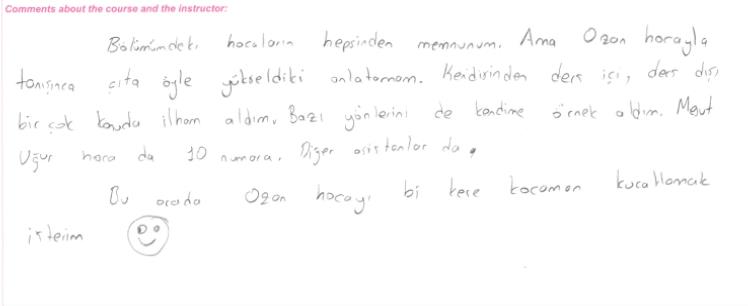 Comments about the course and the instructor:
Bölümümdeki hocaların hepsinden memnunum. Ama Ozan hocayla
tanışınca çıta öyle yükseldiki anlatamam. Kendisinden ders içi, ders dışı
bir çok konuda ilham aldım. Bazı yönlerini de kendime örnek aldım. Mesut
Uğur hoca da 10 numara. Diğer asistanlar da.
Bu arada Ozan hocayı bi kere kocaman kucaklamak
isterim